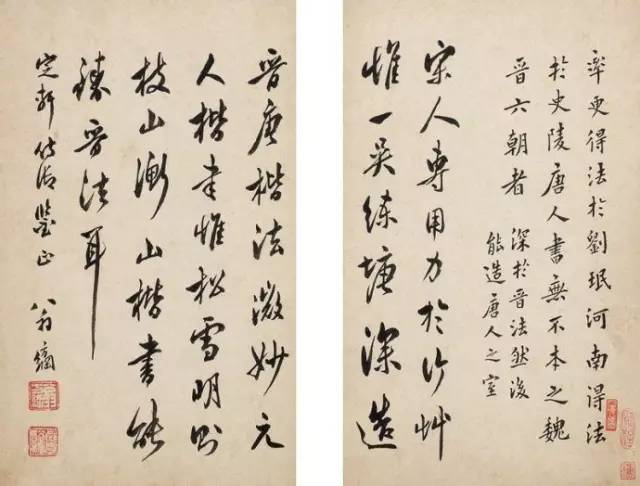 率更得法於劉珉河南得法
於史陵唐人書無不本之魏
晉六朝者深於晉法然後
能造唐人之室
宋人專用力於行艸
惟一吳練塘深造
晉唐楷法微妙元
人楷書惟松雪明則
枝山衡山楷書能
臻晉法耳
定軒侍御鑒正